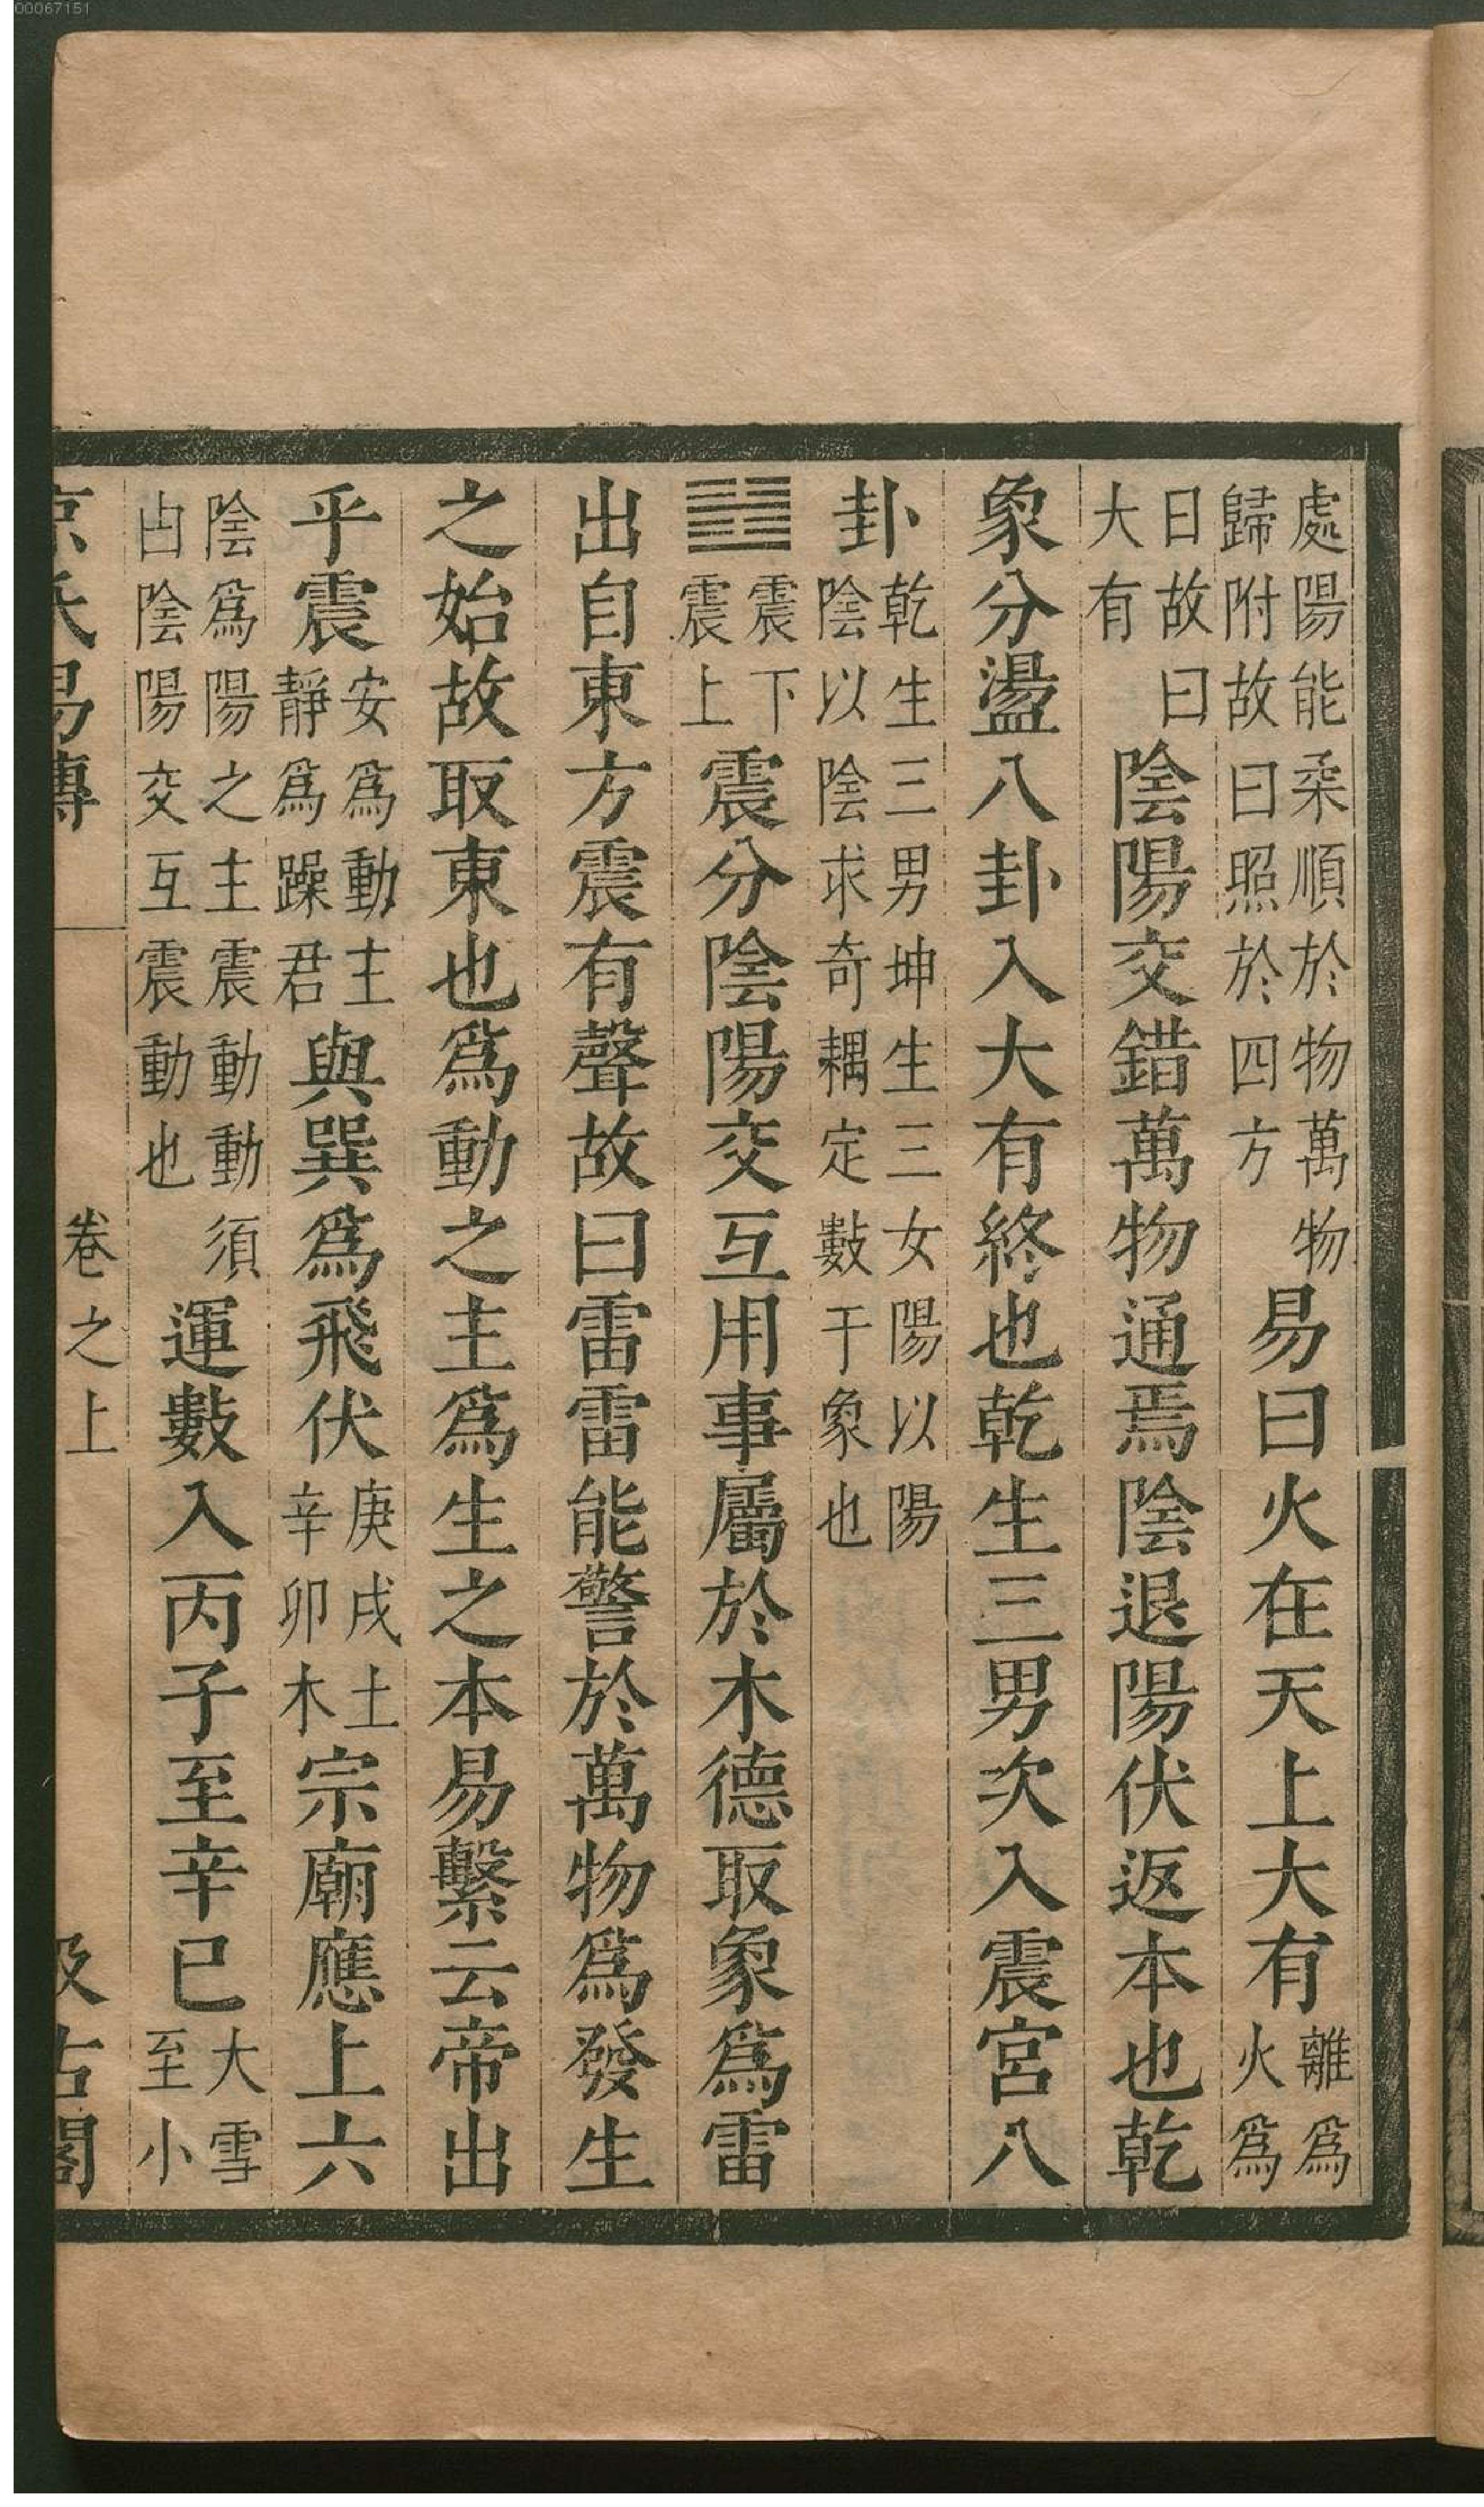 00067151
處陽能柔順於物萬物歸附故曰照於四方易曰火在天上大有離爲火爲
日故曰大有陰陽交錯萬物通焉陰退陽伏返本也乾
象分盪八卦入大有終也乾生三男次入震宮八
卦乾生三男坤生三女陽以陽陰以陰求奇耦定數于象也
䷲震下震上震分陰陽交互用事屬於木德取象爲雷
出自東方震有聲故曰雷雷能警於萬物爲發生
之始故取東也爲動之主爲生之本易繫云帝出
乎震安爲動主靜爲躁君與巽爲飛伏庚戌土辛卯木宗廟應上六
陰爲陽之主震動動須占陰陽交互震動也運數入丙子至辛巳大雪至小
京氏易傳 卷之上 汲古閣